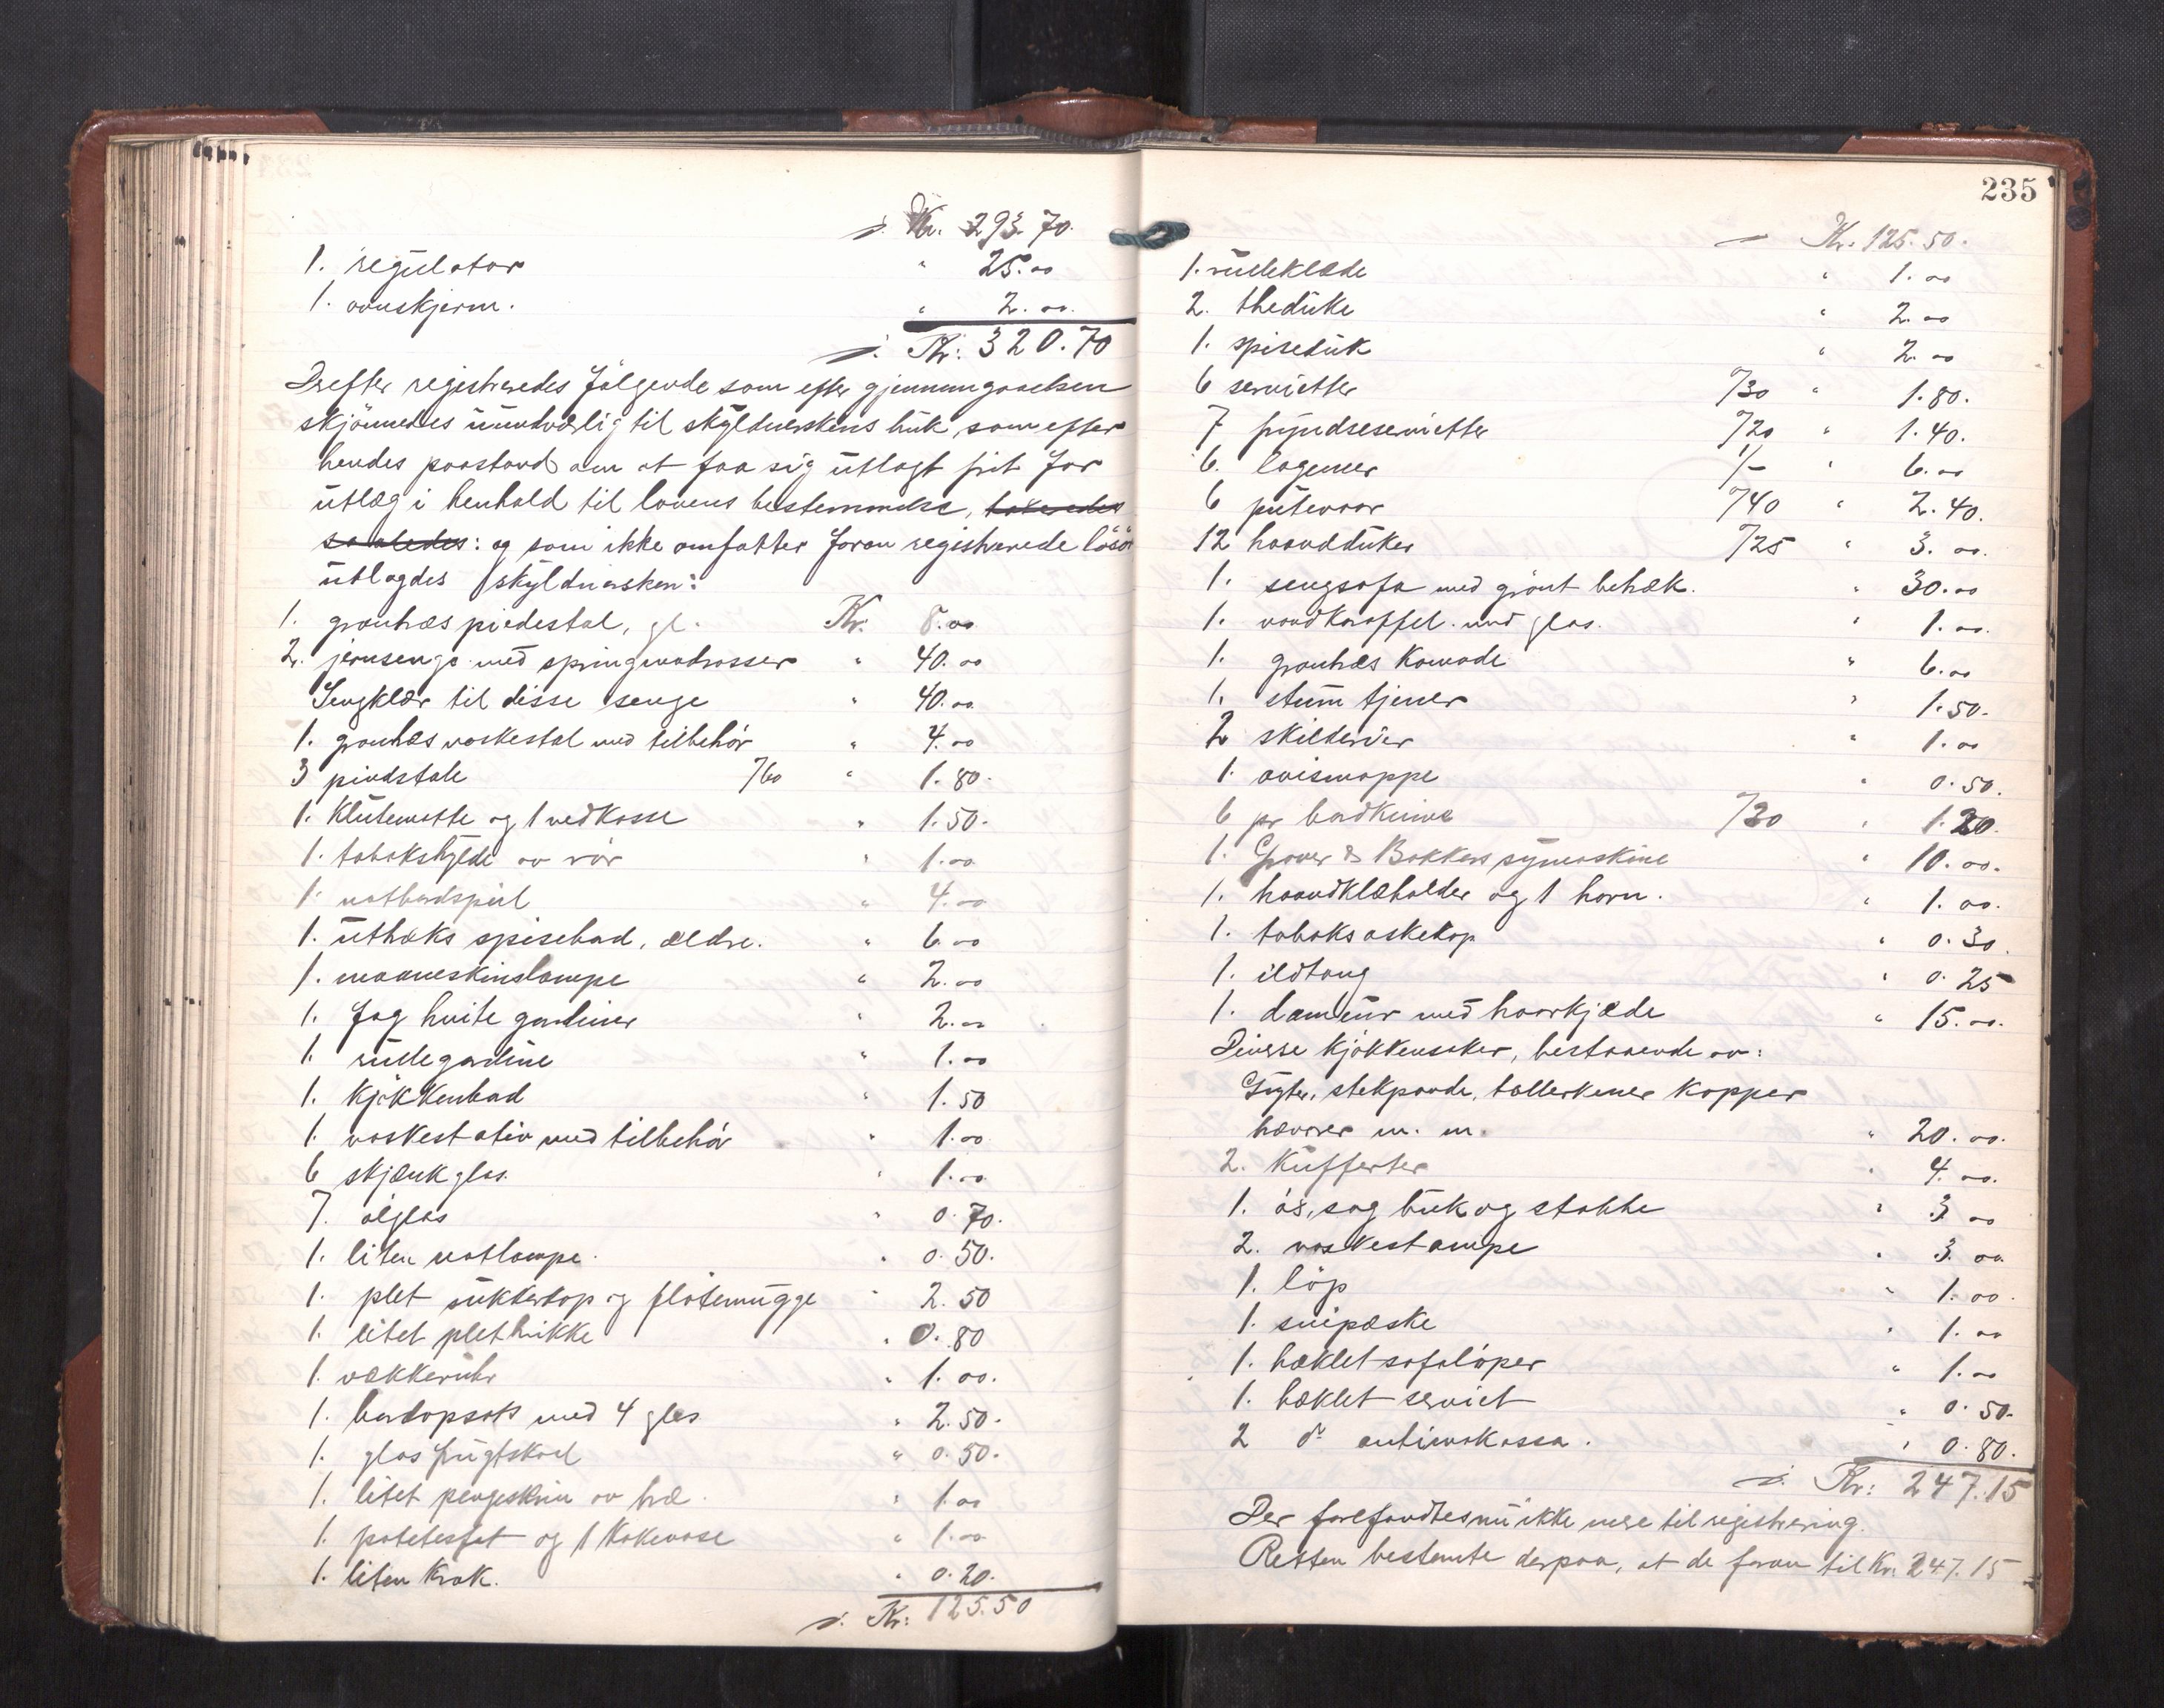 s. Kr. 293.70.
1. regulator " 25.00
1. ovnskjerm. " 2.00.
s. Kr: 320.70
Derefter registreredes følgende som efter gjennemgaaelsen
skjönnedes uundværlig til skyldnerskens bruk, som efter
hendes paastand om at faa sig utlagt frit for
utlæg i henhold til lovens bestemmelse,
saaledes: og som ikke omfatter foran registrerede lösöre
utlagdes skyldnersken:
1. grantræs piedestal, gl. Kr. 8.00
2. jernsenge med springmadrasser " 40.00
Sengklær til disse senge " 40.00
1. grantræs vaskestol med tilbehör " 4.00
3 pindstole /60 " 1.80.
1. klutematte og 1 vedkasse " 1.50.
1. tobakshylde av rör " 1.00
1. natbordspeil " 4.00
1. uttræks spisebord, ældre. " 6.00
1. maaneskinslampe " 2.00
1. fag hvite gardiner " 2.00
1. rullegardine " 1.00
1. kjökkenbord " 1.50
1. vaskestativ med tilbehör " 1.00
6 skjænkglas. " 1.00
7. ölglas " 0.70.
1. liten natlampe. " 0.50.
1. plet sukkerkop og flötemugge " 2.50
1. litet pletbrikke " 0.80
1. vækkeruhr " 1.00.
1. bordopsats med 4 glas " 2.50.
1. glas frugtskaal " 0.50.
1. litet pengeskrin av træ. " 1.00
1. potetesfat og 1 kakevase " 1.00
1. liten krak. " 0.20.
s. Kr: 125.50
235
Kr. 125.50.
1. rulleklæde " 1.00
2. theduke " 2.00
1. spiseduk " 2.00
6 servietter /30 " 1.80.
7 pryndseservietter /20 " 1.40.
6. lagener 1/- " 6.00
6 putevaar /40 " 2.40.
12 haandduker /25 " 3.00.
1. sengsofa med grönt betræk. " 30.00
1. vandkaraffel med glas. " 1.00.
1. grantræs komode " 6.00
1. stum tjener " 1.50.
2 skilderier " 1.00
1. avismappe " 0.50.
6 pr bordknive /20 " 1.20.
1. Grover & Bakkers symaskine " 10.00.
1. haandklæholder og 1 horn. " 1.00.
1. tobaks askekop " 0.30.
1. ildtang " 0.25
1. dameur med haarkjæde " 15.00.
Diverse kjökkensaker, bestaaende av:
Gryter, stekpande, tallerkener kopper
m. m. " 20.00.
2. kufferter " 4.00.
1. øs, sag buk og stabbe " 3.00
2. vaskestampe " 3.00
1. löp " 1.00.
1. snipæske " 1.00
1. hæklet sofalöper " 1.00
1. hæklet serviet " 0.50.
2 do antimakassa. " 0.80.
s. Kr: 247.15
Der forefandtes nu ikke mere til registrering.
Retten bestemte derpaa, at de foran til Kr. 247.15